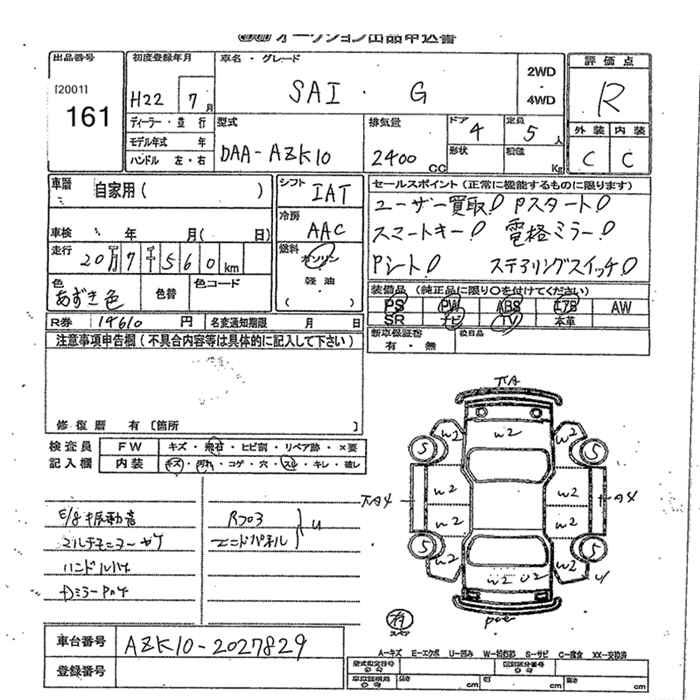 オークション出品申込書
出品番号 初度登録年月 車名・グレード 2WD ・ 4WD 評価点
[2001] 161 H22 7月 SAI・ G R
ディーラー・並行 型式 排気量 ドア 4 定員 5人 外装 内装
モデル年式 年 DAA-AZK10 2400CC 形状 積載 Kg C C
ハンドル 左・右
車歴 自家用( ) シフト IAT セールスポイント(正常に機能するものに限ります)
ユーザー買取! Pスタート!
車検 年 月( 日) 冷房 AAC スマートキー! 電格ミラー!
走行 20万7千560km 燃料 ガソリン 軽油 ( ) Pシート! ステアリングスイッチ!
色 あずき色 色替 色コード 装備品(純正品に限り○を付けてください)
PS PW ABS エアB AW
R券 19610円 名変通知期限 月 日 SR ナビ TV 本革
注意事項申告欄(不具合内容等は具体的に記入して下さい) 新車保証書 有・無 後日品
修復歴 有 [箇所 ]
検査員 FW キズ・飛石・ヒビ割・リペア跡・×要
記入欄 内装 キズ・汚れ・コゲ・穴・スレ・キレ・破レ
E/g振動音 Rフロア
マルチモニターヤケ エンドパネル U
ハンドルハゲ
DミラーPハゲ
πA
W2 W2 W2
5 5
πA4 W2 W2 A4
W2 W2
5 5
W2 W2 U2 W2 U
車台番号 AZK10-2027829
登録番号
A-キズ E-エクボ U-凹み W-補修跡 S-サビ C-腐食 XX-交換済
cm cm cm